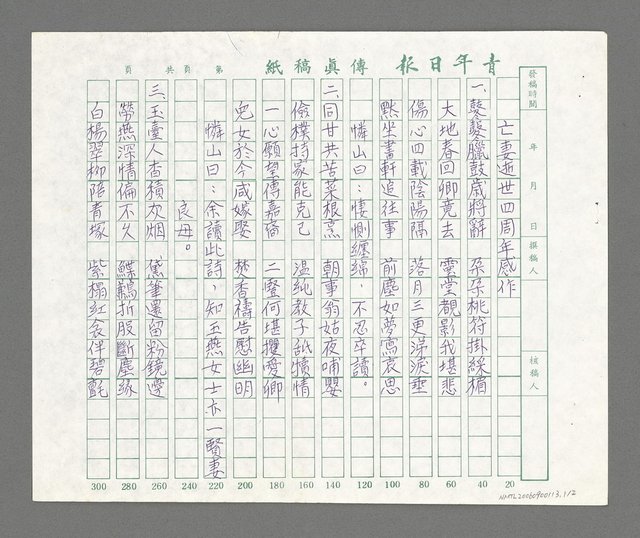 青年日報 傳真稿紙 第 頁共 頁
發稿時間 年 月 日 撰稿人 核稿人
亡妻逝世四周年感作
一、鼕鼕臘鼓歲將辭 朵朵桃符掛綵楣
大地春回卿竟去 靈堂覩影我堪悲
傷心四載陰陽隔 落月三更涕淚垂
默坐書軒追往事 前塵如夢寫哀思
憐山曰：悽惻纏綿，不忍卒讀。
二、同甘共苦菜根烹 朝事翁姑夜哺嬰
儉樸持家能克己 溫純教子舐犢情
一心願望傳嘉裔 二豎何堪攫愛卿
兒女於今咸嫁娶 焚香禱告慰幽明
憐山曰：余讀此詩，知玉燕女士亦一賢妻
良母。
三、玉臺人杳積炊烟 黛筆還留粉鏡邊
勞燕深情偏不久 鰈鶼折股斷塵緣
白楊翠柳陪青塚 紫榻紅衾伴碧氈
20 40 60 80 100 120 140 160 180 200 220 240 260 280 300
NMTL20060900113.1/2